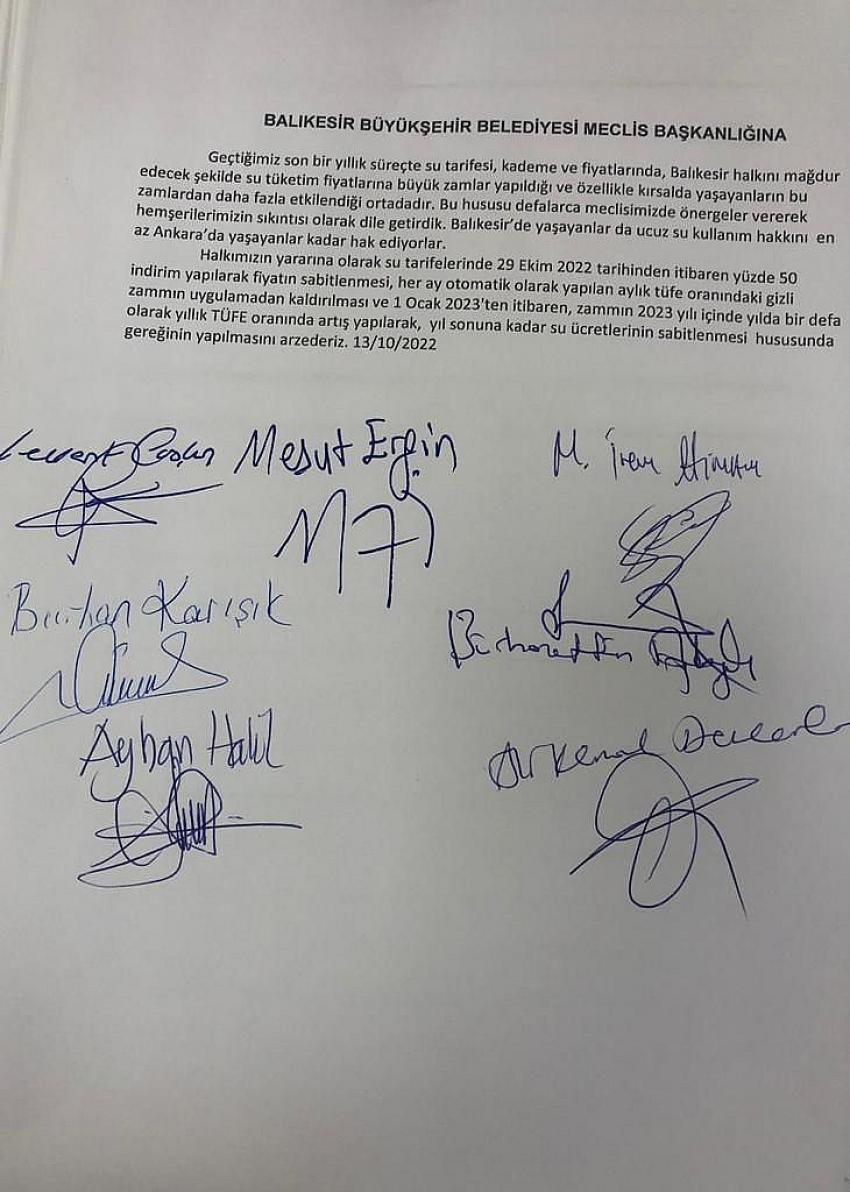 BALIKESİR BÜYÜKŞEHİR BELEDİYESİ MECLİS BAŞKANLIĞINA
Geçtiğimiz son bir yıllık süreçte su tarifesi, kademe ve fiyatlarında, Balıkesir halkını mağdur
edecek şekilde su tüketim fiyatlarına büyük zamlar yapıldığı ve özellikle kırsalda yaşayanların bu
zamlardan daha fazla etkilendiği ortadadır. Bu hususu defalarca meclisimizde önergeler vererek
hemşerilerimizin sıkıntısı olarak dile getirdik. Balıkesir'de yaşayanlar da ucuz su kullanım hakkını en
az Ankara'da yaşayanlar kadar hak ediyorlar.
Halkımızın yararına olarak su tarifelerinde 29 Ekim 2022 tarihinden itibaren yüzde 50
indirim yapılarak fiyatın sabitlenmesi, her ay otomatik olarak yapılan aylık tüfe oranındaki gizli
zammın uygulamadan kaldırılması ve 1 Ocak 2023'ten itibaren, zammın 2023 yılı içinde yılda bir defa
olarak yıllık TÜFE oranında artış yapılarak, yıl sonuna kadar su ücretlerinin sabitlenmesi hususunda
gereğinin yapılmasını arzederiz. 13/10/2022
Mesut Ergin
M. İrem
Burhan Karışık
Ayhan Halil
Ali Kemal